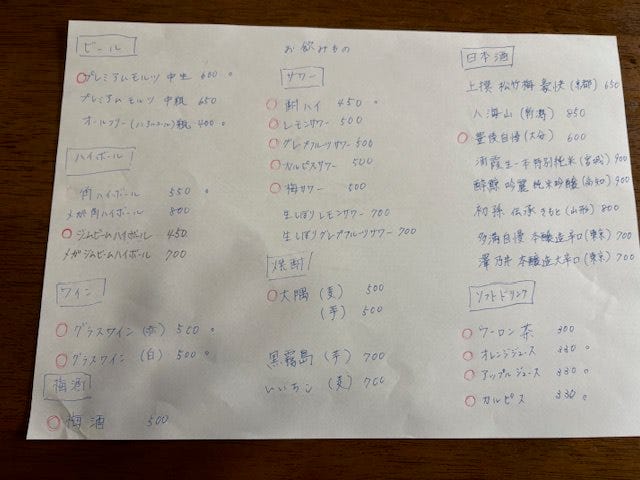 お飲みもの
ビール
プレミアムモルツ 中生 600
プレミアムモルツ 中瓶 650
オールフリー(ノンアルコール)瓶 400
ハイボール
角ハイボール 550
メガ角ハイボール 800
ジムビームハイボール 450
メガジムビームハイボール 700
ワイン
グラスワイン (赤) 500
グラスワイン (白) 500
梅酒
梅酒 500
サワー
酎ハイ 450
レモンサワー 500
グレプフルーツサワー 500
カルピスサワー 500
梅サワー 500
生しぼりレモンサワー 700
生しぼりグレプフルーツサワー 700
焼酎
大隅 (麦) 500
(芋) 500
黒霧島 (芋) 700
いいちこ (麦) 700
日本酒
上撰 松竹梅 豪快 (京都) 650
八海山 (新潟) 850
豊後自慢 (大分) 600
浦霞 生一本 特別純米 (宮城) 900
酔鯨 吟麗 純米吟醸 (高知) 900
初孫 伝承 きもと (山形) 800
多満自慢 本醸造辛口 (東京) 700
澤乃井 本醸造大辛口 (東京) 700
ソフトドリンク
ウーロン茶 300
オレンジジュース 330
アップルジュース 330
カルピス 330